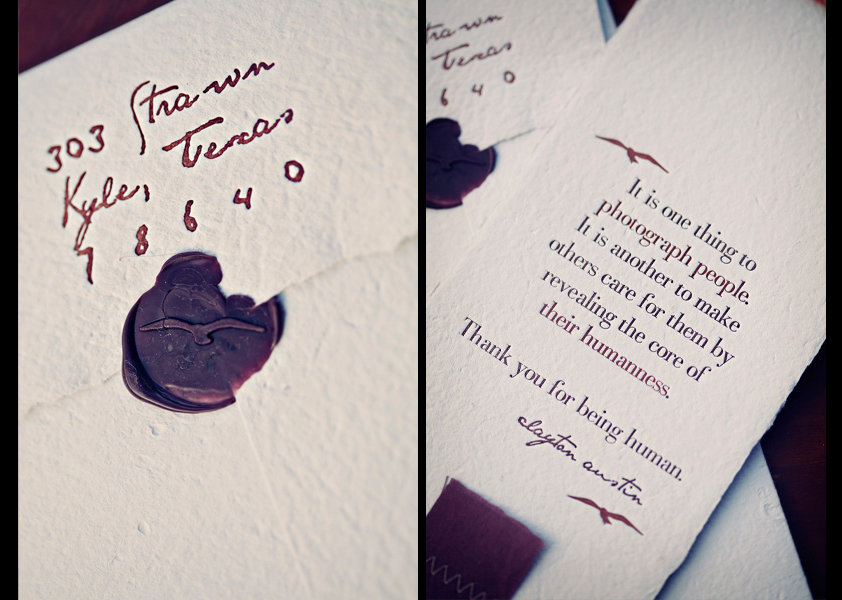 303 Strawn
Texas
Kyle,
78640
Strawn
Texas
640
It is one thing to
photograph people.
It is another to make
others care for them by
revealing the core of
their humanness.
Thank you for being human.
clayton austin